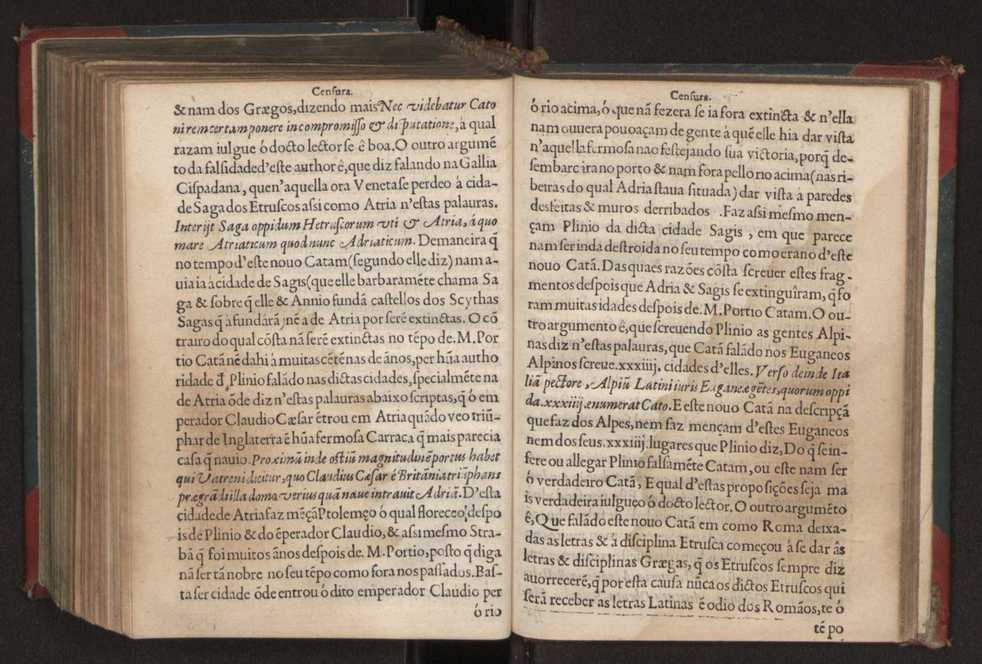 Censura.
& nam dos Grægos, dizendo mais Nec videbatur Cato
ni rem certam ponere in compromisso & disputatione, à qual
razam iulgue ó docto lector se ê boa. O outro argumẽ
to da falsidade d'este author ê, que diz falando na Gallia
Cispadana, que n'aquella ora Veneta se perdeo â cida-
de Saga dos Etruscos assi como Atria n'estas palauras.
Interijt Saga oppidum Hetruscorum vti & Atria, à quo
mare Atriaticum quod nunc Adriaticum. Demaneira q̃
no tempo d'este nouo Catam (segundo elle diz) nam a-
uia ia à cidade de Sagis (que elle barbaramẽte chama Sa
ga & sobre q̃ elle & Annio fundã castellos dos Scythas
Sagas q̃ à fundarã) nẽ a de Atria por serẽ extinctas. O cõ
trairo do qual cõsta nã serẽ extinctas no tẽpo de M. Por
tio Catã nẽ dahi â muitas cẽtẽnas de ãnos, per hũa autho
ridade d̃ Plinio falãdo nas dictas cidades, specialmẽte na
de Atria õde diz n'estas palauras abaixo scriptas, q̃ ó em
perador Claudio Cæsar ẽtrou em Atria quãdo veo triũ-
phar de Inglaterra ẽ hũa fermosa Carraca q̃ mais parecia
casa q̃ nauio. Proximũ inde ostiũ magnitudinẽ portus habet
qui Vatreni dicitur, quo Claudius Cæsar è Britãnia triũphans
prægrãdi illa domo verius quã naue intrauit Adriã. D'esta
cidade de Atria faz mẽçã Ptolemęo ó qual floreceo, despo
is de Plinio & do ẽperador Claudio, & assi mesmo Stra-
bã q̃ foi muitos ãnos despois de. M. Portio, posto q̃ diga
nã ser tã nobre no seu tẽpo como fora nos passados. Bas-
ta ser cidade õde entrou ó dito emperador Claudio per
ó rio
Censura.
ó rio acima, ó que nã fezera se ia fora extincta & n'ella
nam ouuera pouoaçam de gente à quẽ elle hia dar vista
n'aquella fermosa nao festejando sua victoria, porq̃ de-
sembarcira no porto & nam fora pello rio acima (nas ri-
beiras do qual Adria staua situada) dar vista à paredes
desfeitas & muros derribados. Faz assi mesmo men-
çam Plinio da dicta cidade Sagis, em que parece
nam ser inda destroida no seu tempo como era no d'este
nouo Catã. Das quaes razões cõsta screuer estes frag-
mentos despois que Adria & Sagis se extinguîram, q̃ fo
ram muitas idades despois de. M. Portio Catam. O ou-
tro argumento ê, que screuendo Plinio as gentes Alpi-
nas diz n'estas palauras, que Catã falãdo nos Euganeos
Alpinos screue. xxxiiij. cidades d'elles. Verso deinde Ita
liã pectore, Alpiũ Latini iuris Euganeæ gẽtes, quorum oppi
da. xxxiiij. enumerat Cato. E este nouo Catã na descripçã
que faz dos Alpes, nem faz mençam d'estes Euganeos
nem dos seus. xxxiiij. lugares que Plinio diz, Do q̃ se in-
fere ou allegar Plinio falsamẽte Catam, ou este nam ser
ó verdadeiro Catã, E qual d'estas proposições seja ma
is verdadeira iulgueo ó docto lector. O outro argumẽto
ê, Que falãdo este nouo Catã em como Roma deixa-
das as letras & à disciplina Etrusca começou â se dar ãs
letras & disciplinas Grægas, q̃ os Etruscos sempre diz
auorrecerẽ, q̃ por esta causa nũca os dictos Etruscos qui
serã receber as letras Latinas ẽ odio dos Romãos, te ó
tẽ po